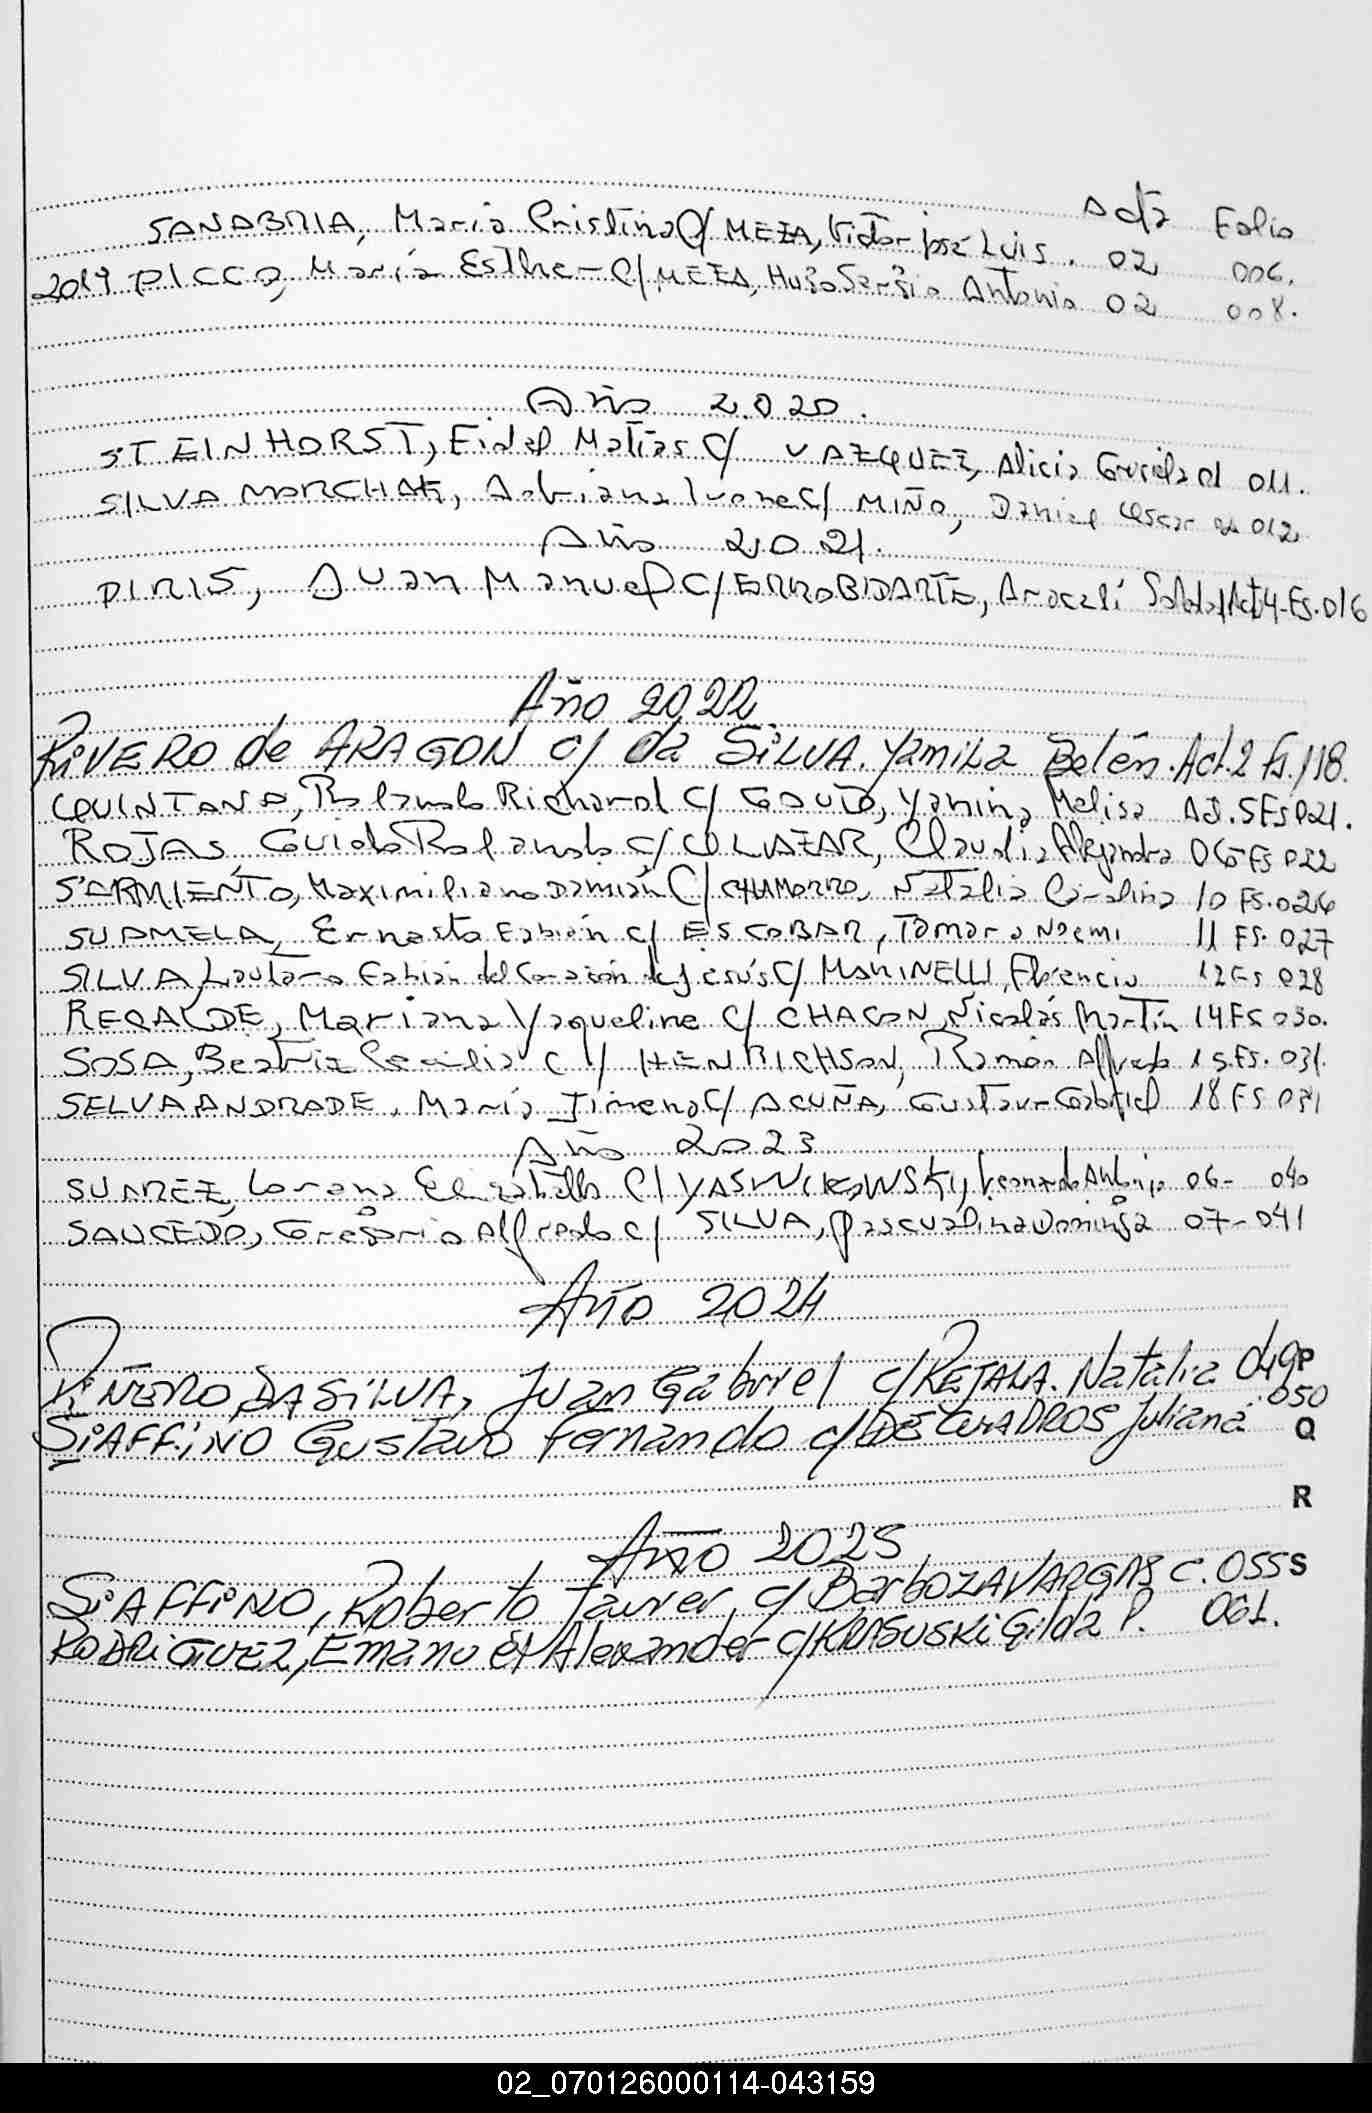 Acta Folio
SANABRIA, María Cristina C/ MEZA, Victor José Luis. 02 006.
2019 PICCO, María Esther C/ MEZA, Hugo Sergio Antonio 02 008.
Año 2.020.
STEINHORST, Fidel Matías C/ VAZQUEZ, Alicia Graciela 01 011.
SILVA MARCHAK, Adriana Ivone C/ MIÑO, Daniel Cesar 012
Año 2021.
PIRIS, Juan Manuel C/ ERROBIDARTE, Araceli Act 4-Fs.016
Año 2022.
RIVERO de ARAGON c/ da SILVA. Yamila Belén. Act.2 Fs.118.
QUINTANA, Rolando Richard C/ GOUTO, Yanina Melisa Act.5 Fs 021.
ROJAS, Guido Rolando C/ COLAZAR, Claudia Alejandra 06 Fs 022
SARMIENTO, Maximiliano Damián C/ CHAMORRO, Natalia Carolina 10 Fs.026
SUAMELA, Ernesto Fabián c/ ESCOBAR, Tamara Noemi 11 FS. 027
SILVA, Lautaro Fabián del Corazón de Jesús C/ MARINELLI, Florencia 12 Fs 028
REGALDE, Mariana Yaqueline C/ CHACON, Nicolás Martín 14 FS 030.
SOSA, Beatriz Cecilia C/ HENRICHSON, Ramón Alfredo 15 Fs. 031.
SELVA ANDRADE, María Jimena C/ ACUÑA, Gustavo Gabriel 18 FS
Año 2023
SUAREZ, Lorena Elizabeth C/ YASNIKOWSKI, Leonardo Antonio 06- 040
SAUCEDO, Gregorio Alfredo c/ SILVA, Pascualina Dominga 07-041
Año 2024
PIÑERO DA SILVA, Juan Gabriel c/ REJALA. Natalia 049 P
SIAFFINO Gustavo Fernando c/ DE CUADROS Juliana 050
Q
R
Año 2025
SIAFFINO, Roberto Javier, c/ Barboza VARGAS C. 055 S
RODRIGUEZ, Emanuel Alexander c/ KRASUSKI Gilda P. 061.
02_070126000114-043159